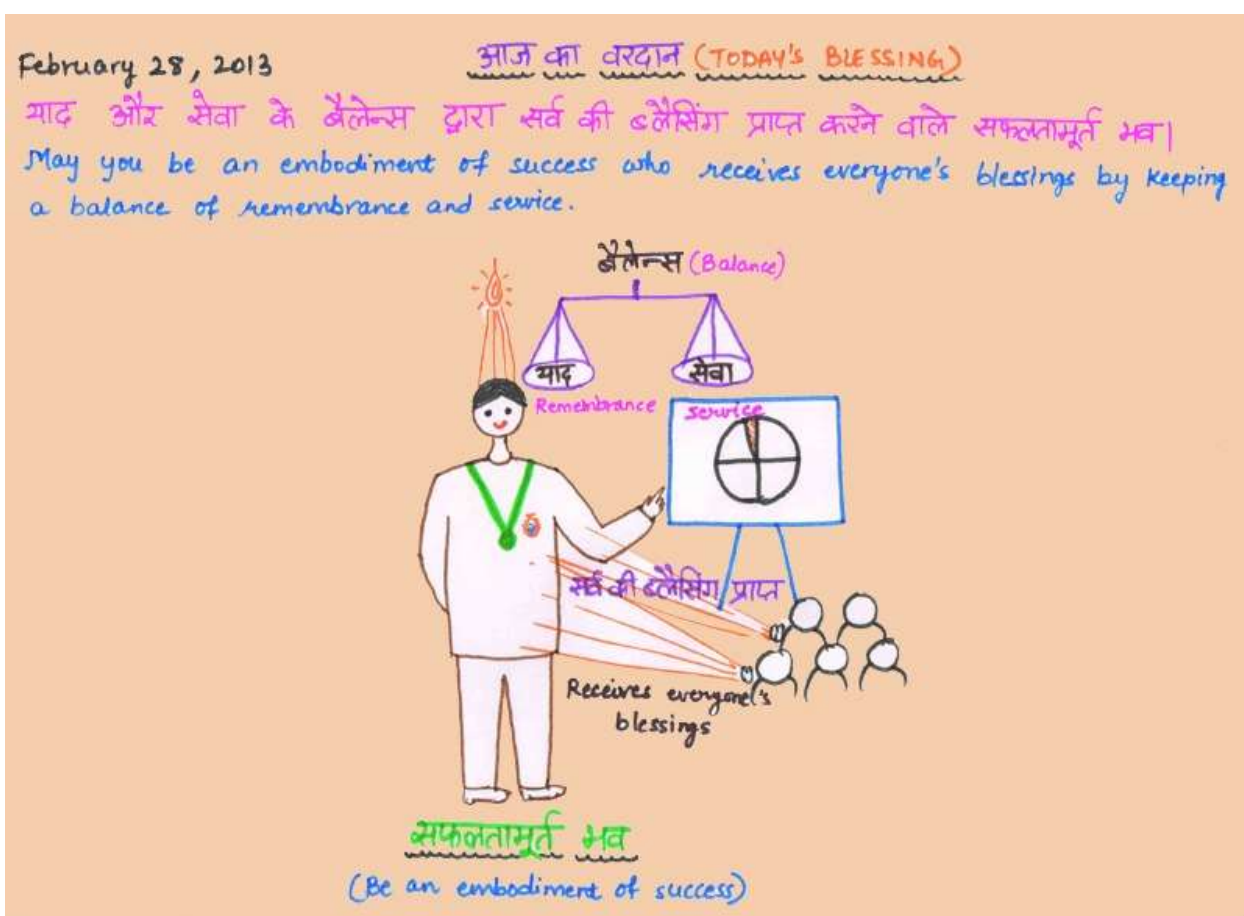 February 28, 2013
आज का वरदान (TODAY'S BLESSING)
याद और सेवा के बैलेन्स द्वारा सर्व की ब्लैसिंग प्राप्त करने वाले सफलतामूर्त भव।
May you be an embodiment of success who receives everyone's blessings by keeping
a balance of remembrance and service.
बैलेन्स (Balance)
याद
सेवा
Remembrance
service
सर्व की ब्लैसिंग प्राप्त
Receives everyone's
blessings
सफलतामूर्त भव
(Be an embodiment of success)